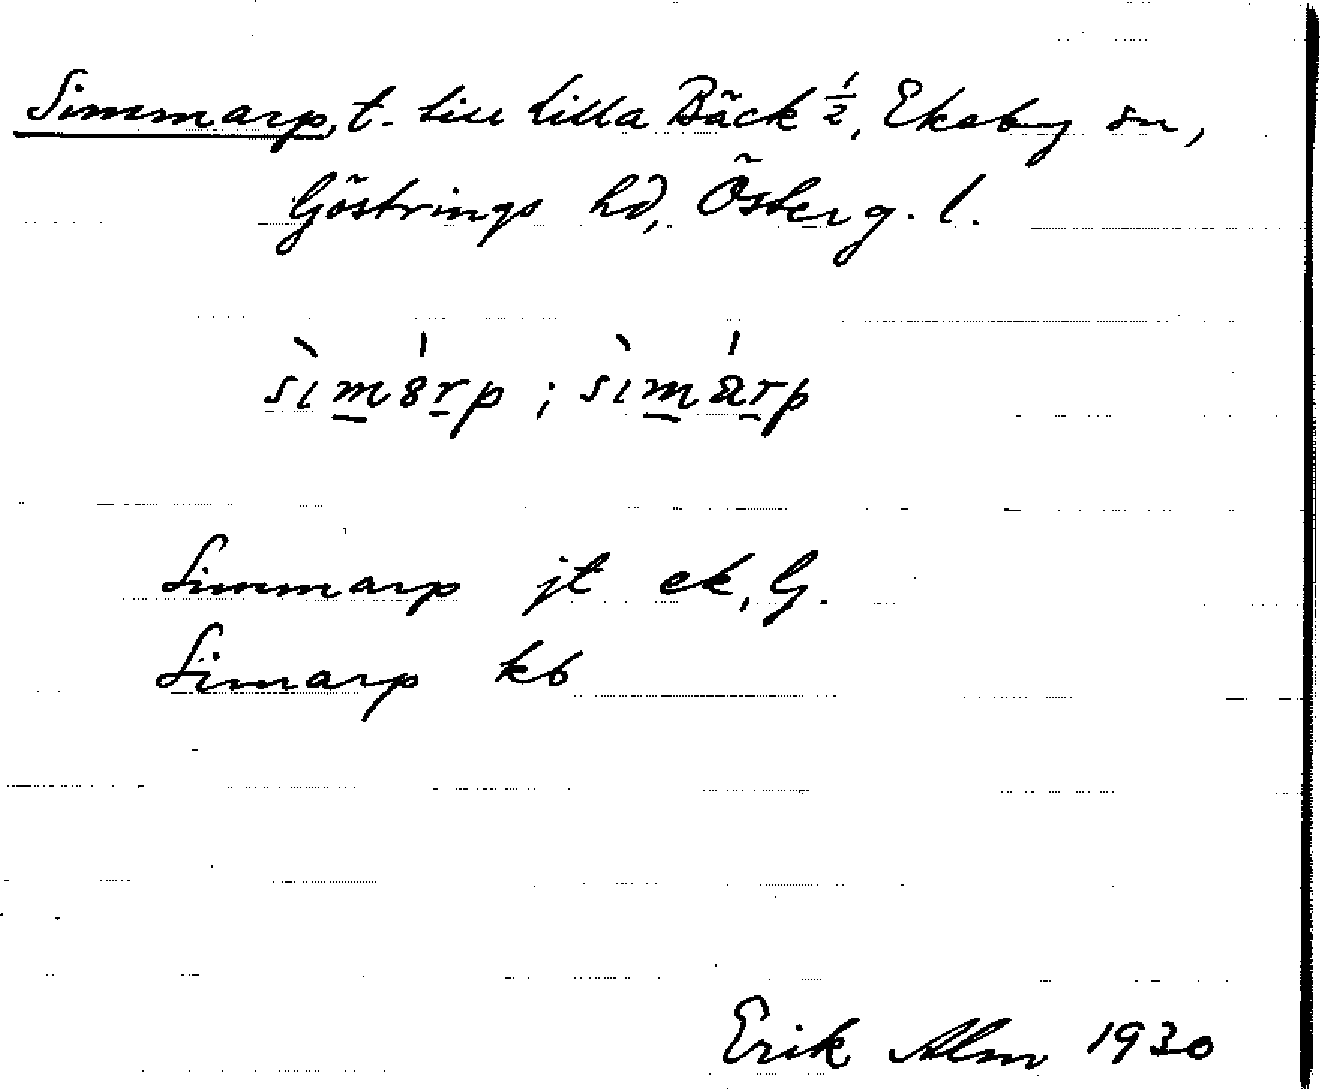 Simmarp, t. till Lilla Bäck ½, Ekeby sn,
Göstrings hd, Österg. l.
sìmárp; sìmárp
Simmarp jt ek, G.
Simarp kb
Erik Alm 1930